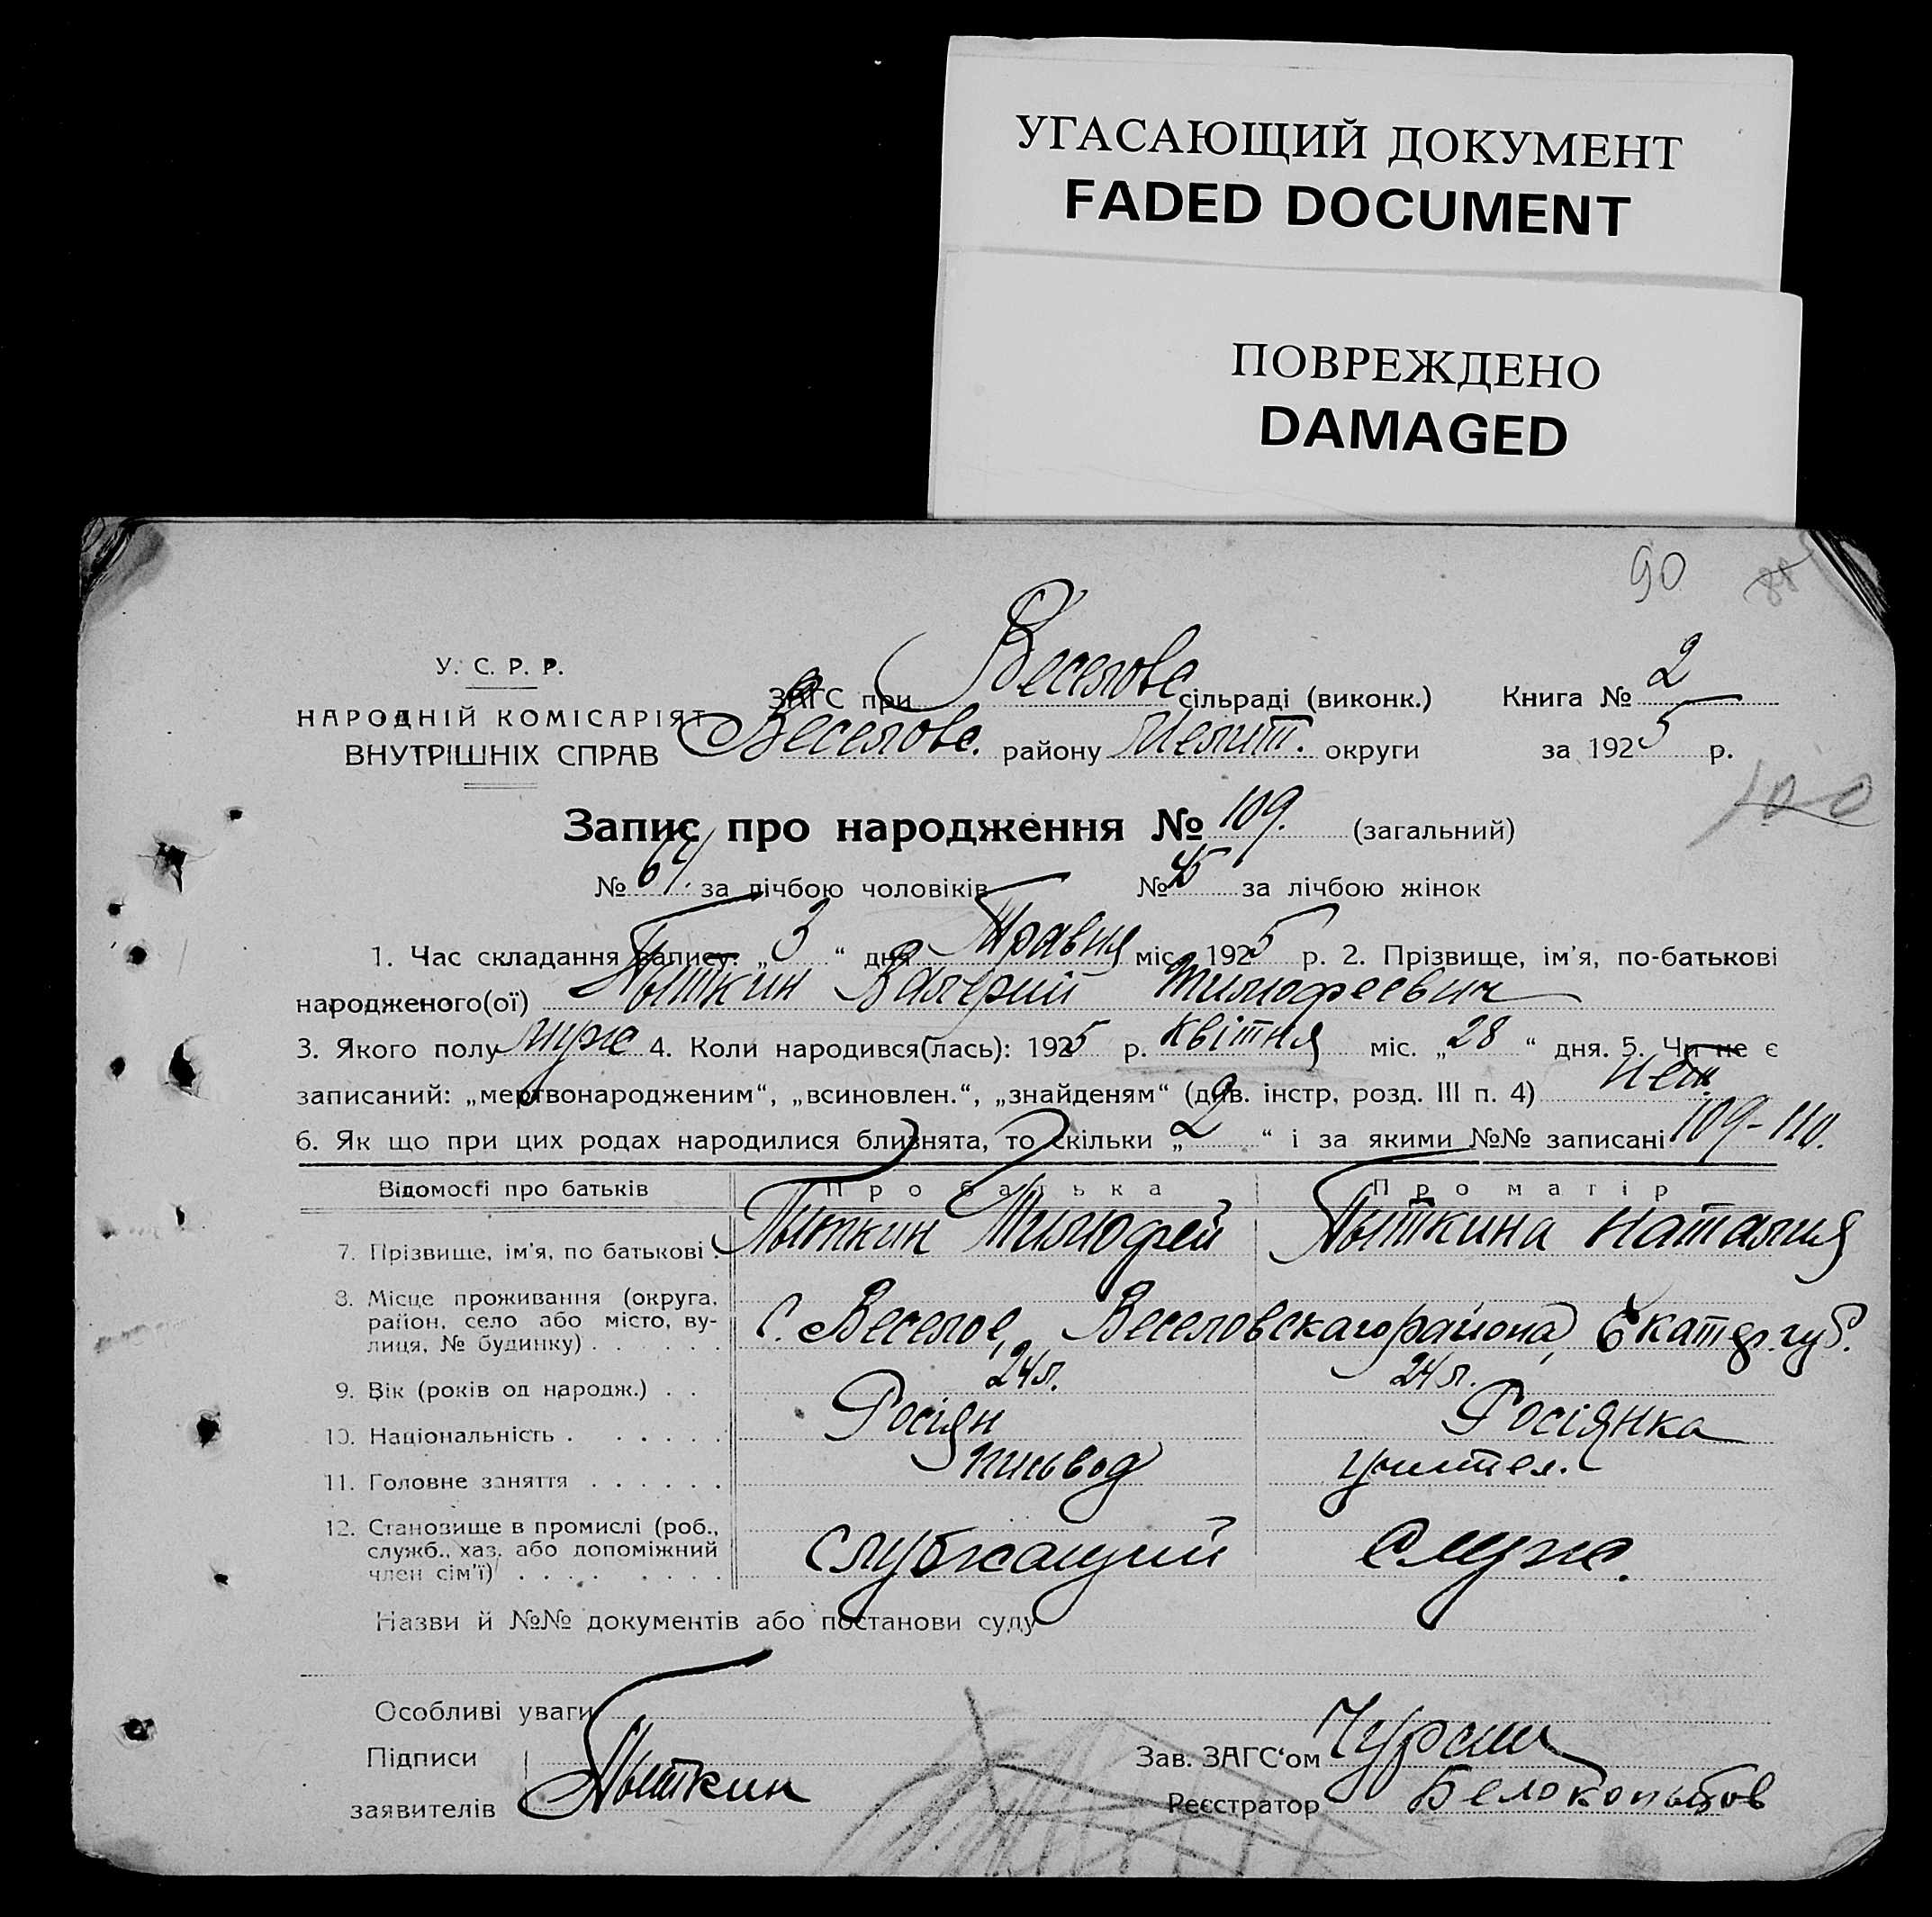 УГАСАЮЩИЙ ДОКУМЕНТ
FADED DOCUMENT
ПОВРЕЖДЕНО
DAMAGED
90 88
У. С. Р. Р.
НАРОДНІЙ КОМІСАРІЯТ
ВНУТРІШНІХ СПРАВ
ЗАГС при Веселовс сільраді (виконк.) Книга № 2
Веселовс. району Мелит. округи за 1925 р.
100
Запис про народження № 109. (загальний)
№ 64. за лічбою чоловіків № 45 за лічбою жінок
1. Час складання запису: „3“ дня Травня міс. 1925 р. 2. Прізвище, ім'я, по-батькові
народженого(ої) Пыткин Валерий Тимофеевич
3. Якого полу муже 4. Коли народився(лась): 1925 р. квітня міс. „28“ дня. 5. Чи не є
записаний: „мертвонародженим“, „всиновлен.“, „знайденям“ (див. інстр, розд. III п. 4) Нет
6. Як що при цих родах народилися близнята, то скільки „2“ і за якими №№ записані 109-110.
Відомості про батьків Про батька Про матір
7. Прізвище, ім'я, по батькові . Пыткин Тимофей Пыткина Наталия
8. Місце проживання (округа, район, село або місто, вулиця, № будинку) . . . . . . С. Веселое, Веселовскаго района, Екатер. губ.
9. Вік (років од народж.) . . 24 л. 24 л.
10. Національність . . . . . . Росіян Росіянка
11. Головне заняття . . . . . . письвод учител.
12. Становище в промислі (роб., служб., хаз. або допоміжний член сім'ї) . . . . . . . . служащий служ.
Назви й №№ документів або постанови суду
Особливі уваги
Підписи
заявителів Пыткин
Зав. ЗАГС'ом Чурсин
Реєстратор Белокопытов